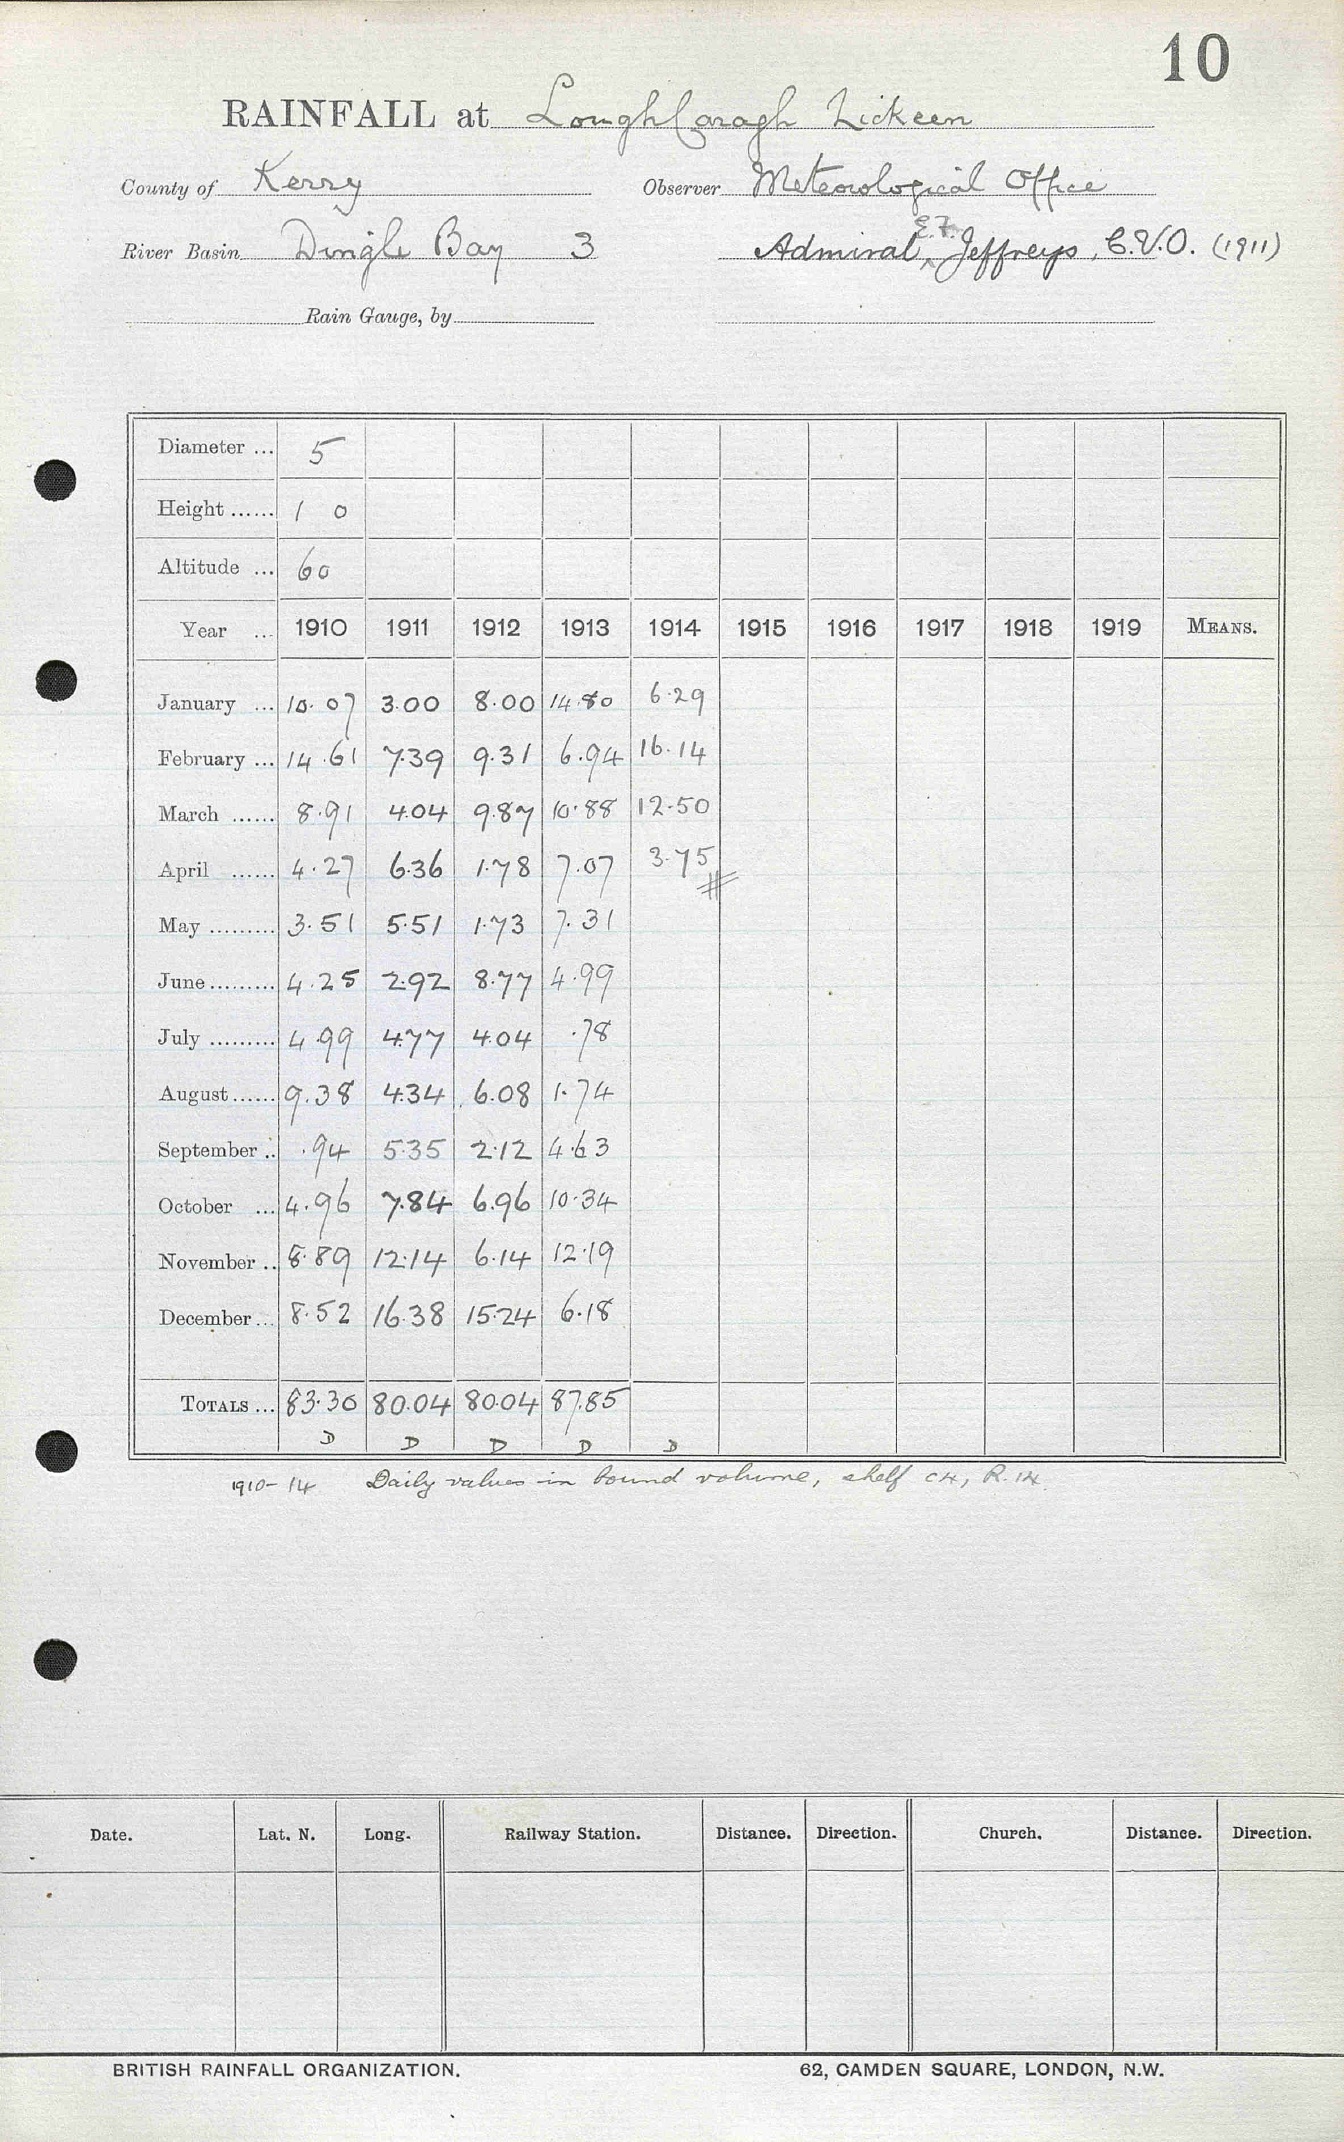 10
RAINFALL at Lough Caragh Lickeen
County of Kerry Observer Meteorological Office
River Basin Dingle Bay 3 Admiral E.F. Jeffreys, C.V.O. (1911)
Rain Gauge, by
Diameter ... 5
Height ...... 1 0
Altitude ... 60
Year ... 1910 1911 1912 1913 1914 1915 1916 1917 1918 1919 MEANS.
January ... 10.07 3.00 8.00 14.80 6.29
February ... 14.61 7.39 9.31 6.94 16.14
March ...... 8.91 4.04 9.87 10.88 12.50
April ...... 4.27 6.36 1.78 7.07 3.75
May ......... 3.51 5.51 1.73 7.31
June ......... 4.25 2.92 8.77 4.99
July ......... 4.99 4.77 4.04 .78
August ...... 9.38 4.34 6.08 1.74
September .. .94 5.35 2.12 4.63
October ... 4.96 7.84 6.96 10.34
November .. 8.89 12.14 6.14 12.19
December ... 8.52 16.38 15.24 6.18
TOTALS ... 83.30 80.04 80.04 87.85
D D D D D
1910-14 Daily values in bound volume, shelf C4, R.14.
Date. Lat. N. Long. Railway Station. Distance. Direction. Church. Distance. Direction.
BRITISH RAINFALL ORGANIZATION. 62, CAMDEN SQUARE, LONDON, N.W.